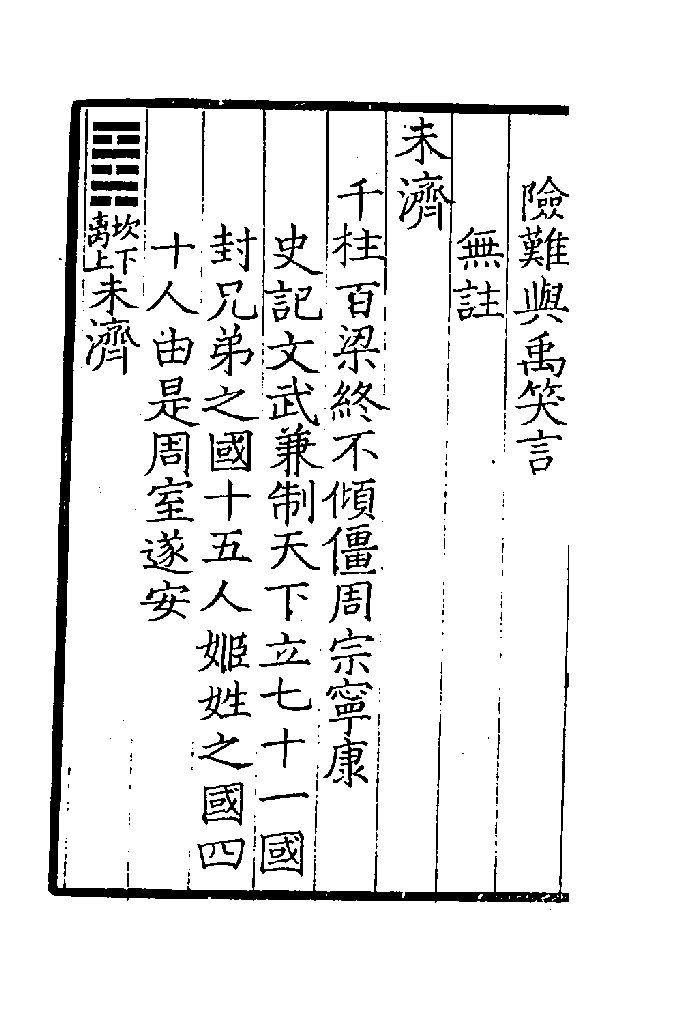 險難與禹笑言
無註
未濟
千柱百梁終不傾僵周宗寧康
史記文武兼制天下立七十一國
封兄弟之國十五人姬姓之國四
十人由是周室遂安
䷿坎下離上未濟